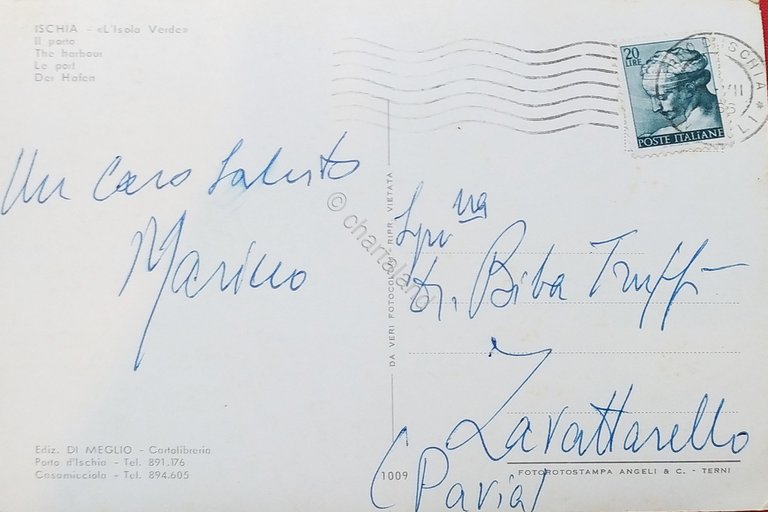 ISCHIA - «L'Isola Verde»
Il porto
The harbour
Le port
Der Hafen
20
LIRE
POSTE ITALIANE
D'ISCHIA
VII
Un caro saluto
Marino
DA VERI FOTOCOLOR RIPR. VIETATA
© chartaland
na
Biba Truffi
Zavattarello
(Pavia)
Ediz. DI MEGLIO - Cartolibreria
Porto d'Ischia - Tel. 891.176
Casamicciola - Tel. 894.605
1009
FOTOROTOSTAMPA ANGELI & C. - TERNI